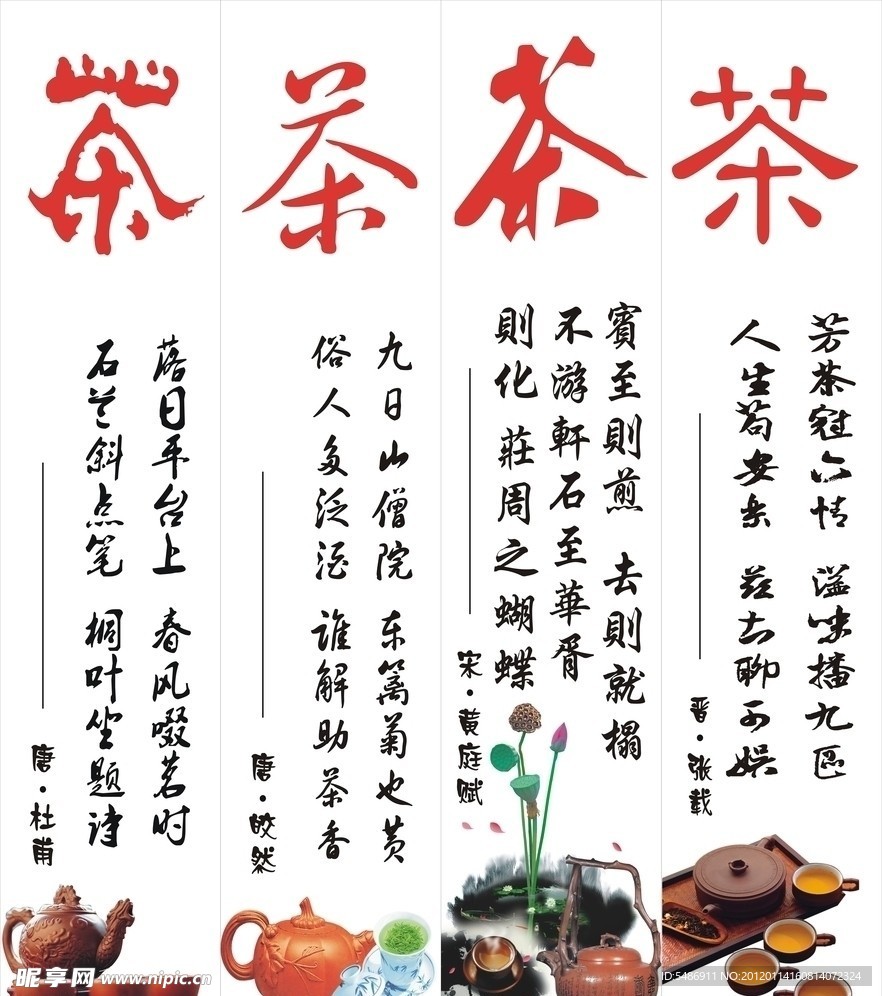 茶
芳茶冠六情 溢味播九區
人生苟安樂 茲土聊可娱
晋·张载
茶
賓至則煎 去則就榻
不游軒石至華胥
則化 莊周之蝴蝶
宋·黄庭赋
茶
九日山僧院 东篱菊也黄
俗人多泛酒 谁解助茶香
唐·皎然
茶
落日平台上 春风啜茗时
石兰斜点笔 桐叶坐题诗
唐·杜甫
昵享网 www.nipic.cn
ID:5486911 NO:20120114160814072324